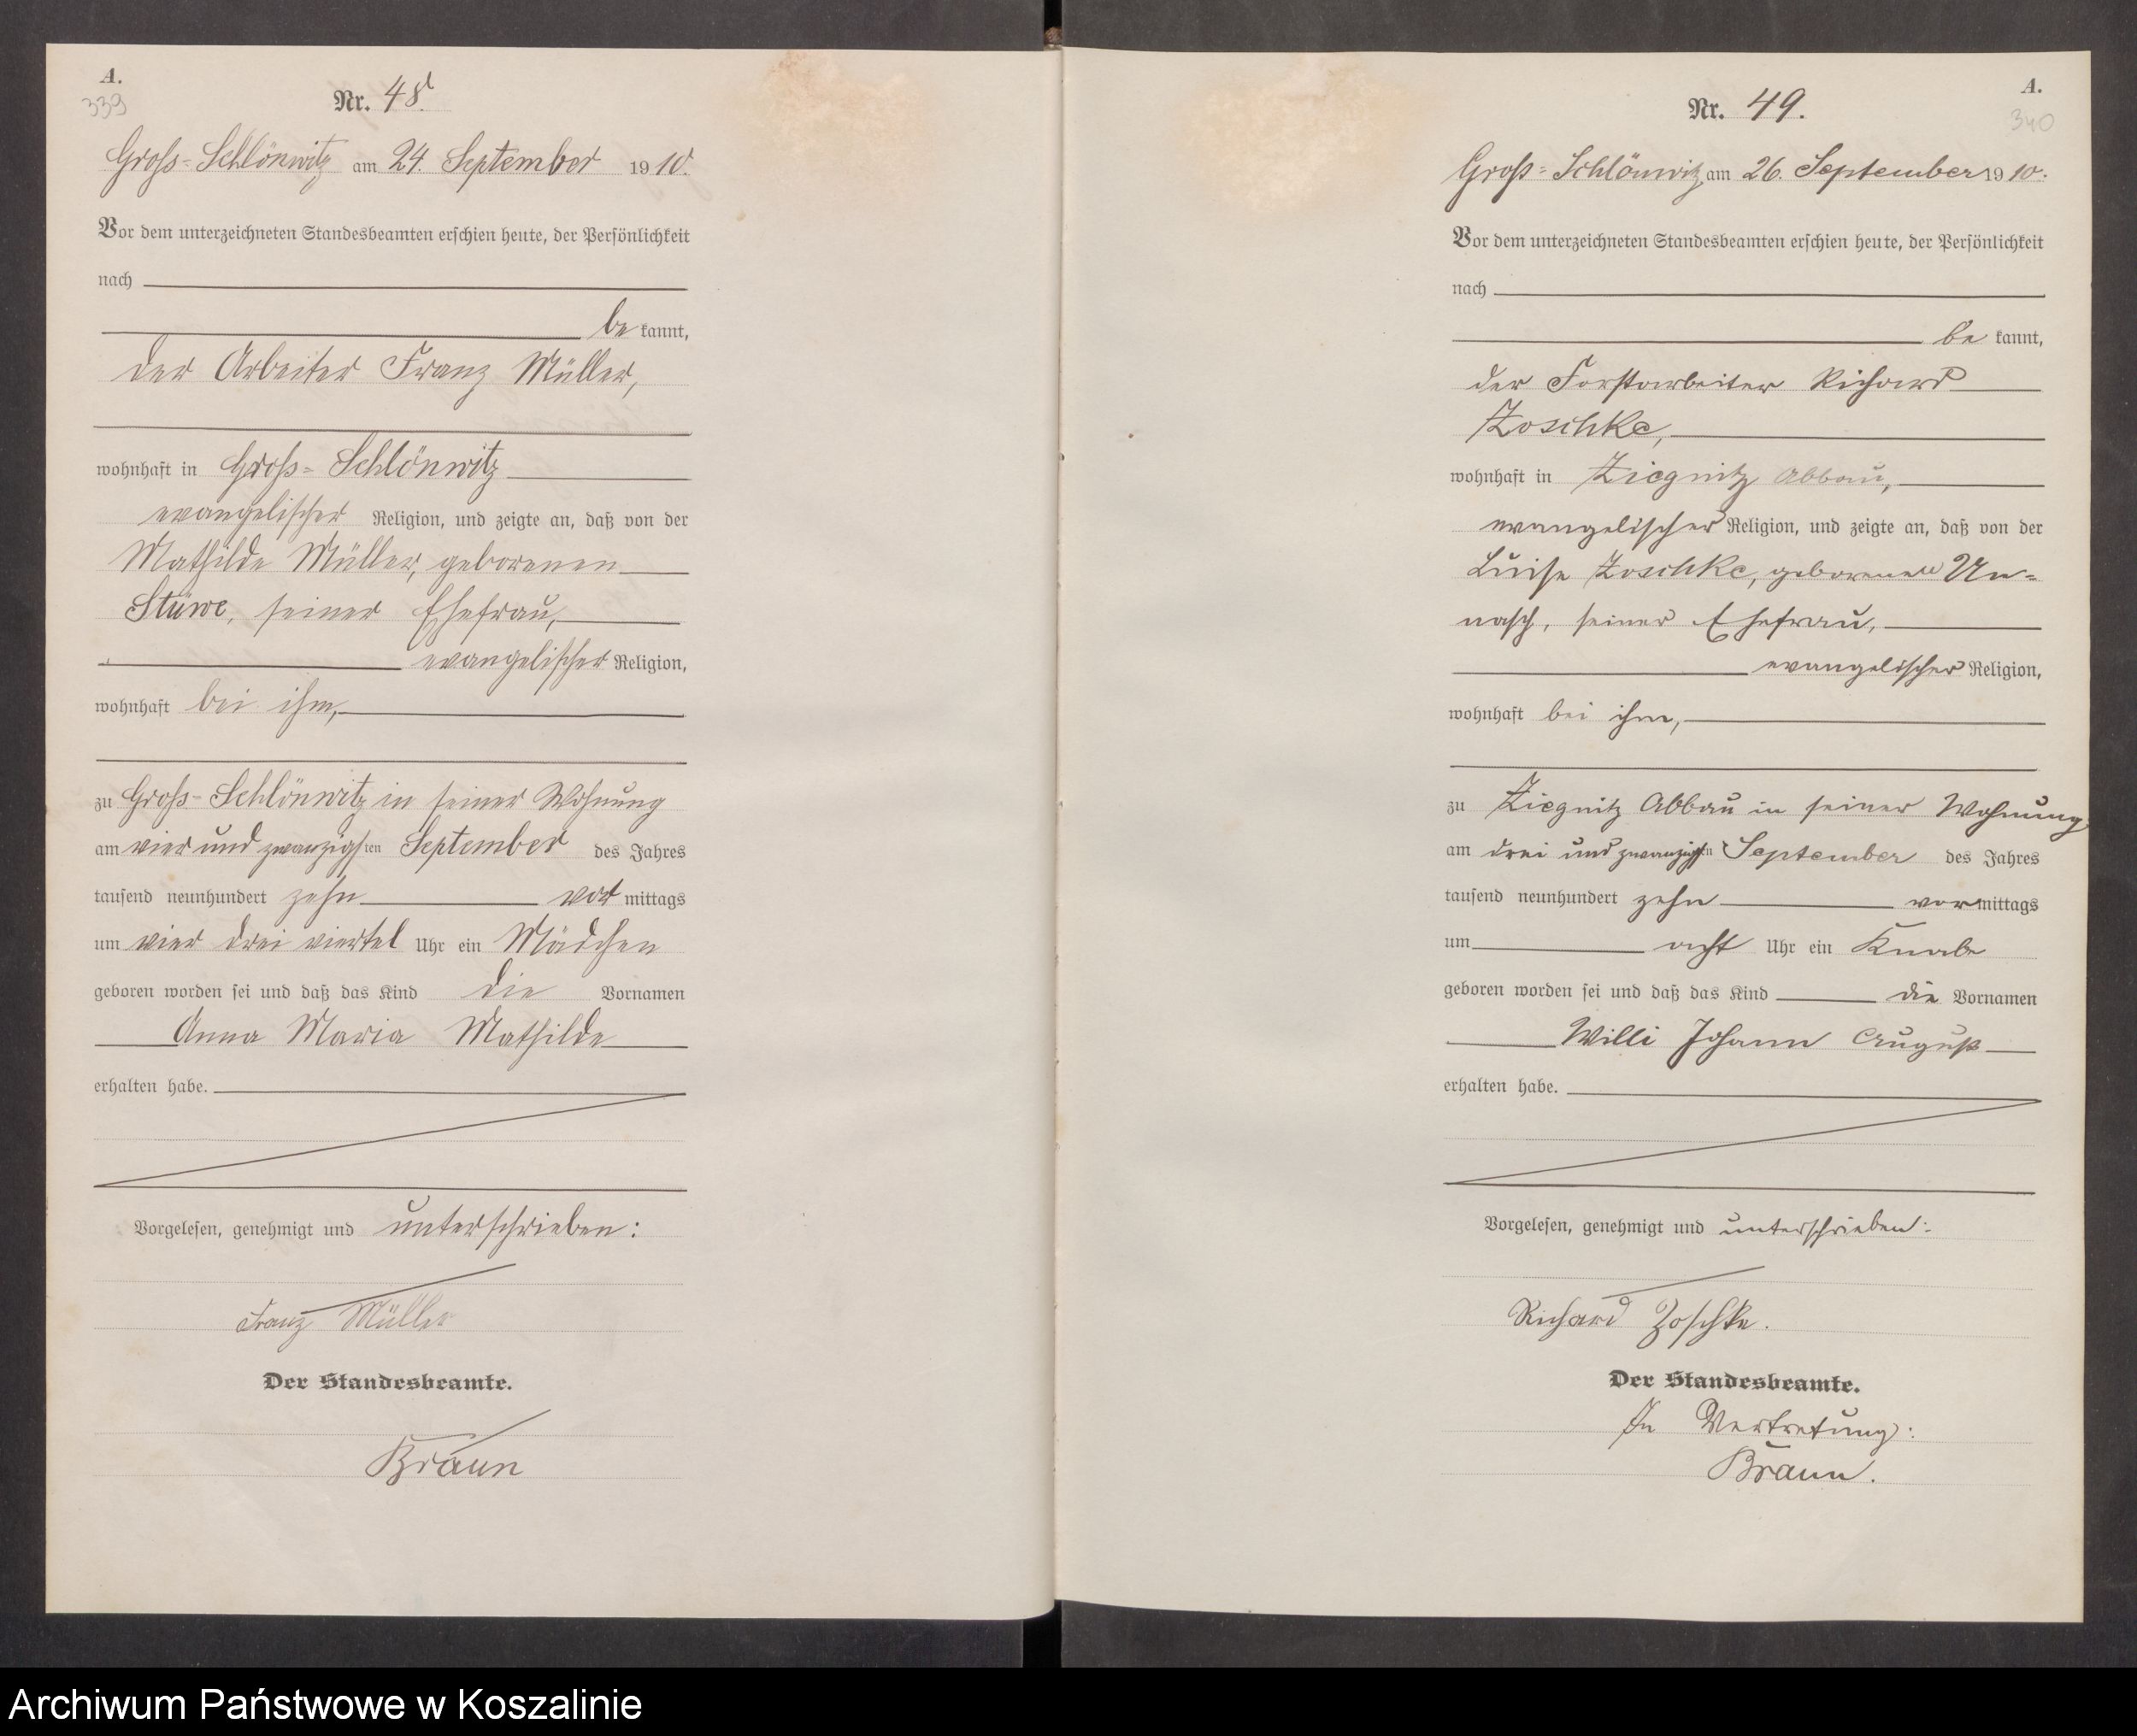 A.
339
Nr. 48.
Groß-Schlönwitz am 24. September 1910.
Vor dem unterzeichneten Standesbeamten erschien heute, der Persönlichkeit
nach
be kannt,
der Arbeiter Franz Müller,
wohnhaft in Groß-Schlönwitz
evangelischer Religion, und zeigte an, daß von der
Mathilde Müller, geborenen
Stüwe, seiner Ehefrau,
evangelischer Religion,
wohnhaft bei ihm,
zu Groß-Schlönwitz in seiner Wohnung
am vier und zwanzigsten September des Jahres
tausend neunhundert zehn vor mittags
um vier drei viertel Uhr ein Mädchen
geboren worden sei und daß das Kind die Vornamen
Anna Maria Mathilde
erhalten habe.
Vorgelesen, genehmigt und unterschrieben:
Franz Müller
Der Standesbeamte.
Braun
A.
340
Nr. 49.
Groß-Schlönwitz am 26. September 1910.
Vor dem unterzeichneten Standesbeamten erschien heute, der Persönlichkeit
nach
be kannt,
der Forstarbeiter Richard
Zoschke,
wohnhaft in Ziegnitz Abbau,
evangelischer Religion, und zeigte an, daß von der
Luise Zoschke, geborenen Un-
nasch, seiner Ehefrau,
evangelischer Religion,
wohnhaft bei ihm,
zu Ziegnitz Abbau in seiner Wohnung
am drei und zwanzigsten September des Jahres
tausend neunhundert zehn vor mittags
um acht Uhr ein Knabe
geboren worden sei und daß das Kind die Vornamen
Willi Johann August
erhalten habe.
Vorgelesen, genehmigt und unterschrieben:
Richard Zoschke.
Der Standesbeamte.
In Vertretung:
Braun.
Archiwum Państwowe w Koszalinie